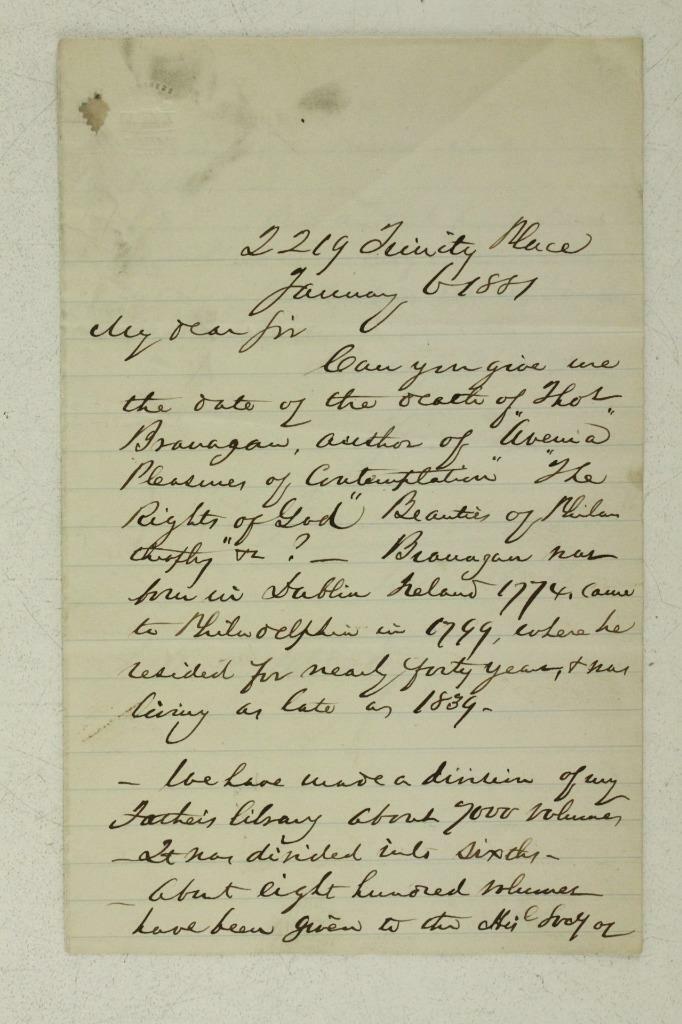 2219 Trinity Place
January 6 1881
My dear Sir
Can you give me
the date of the death of Thos
Branagan, author of "Avenia"
Pleasures of Contemplation" "The
Rights of God" Beauties of Philan
thophy" &c ? — Branagan was
born in Dublin Ireland 1774, came
to Philadelphia in 1799, where he
resided for nearly forty years, & was
living as late as 1839 -
- We have made a division of my
Father's library about 7000 volumes
- It was divided into sixths -
- About eight hundred volumes
have been given to the Hisl Socy of